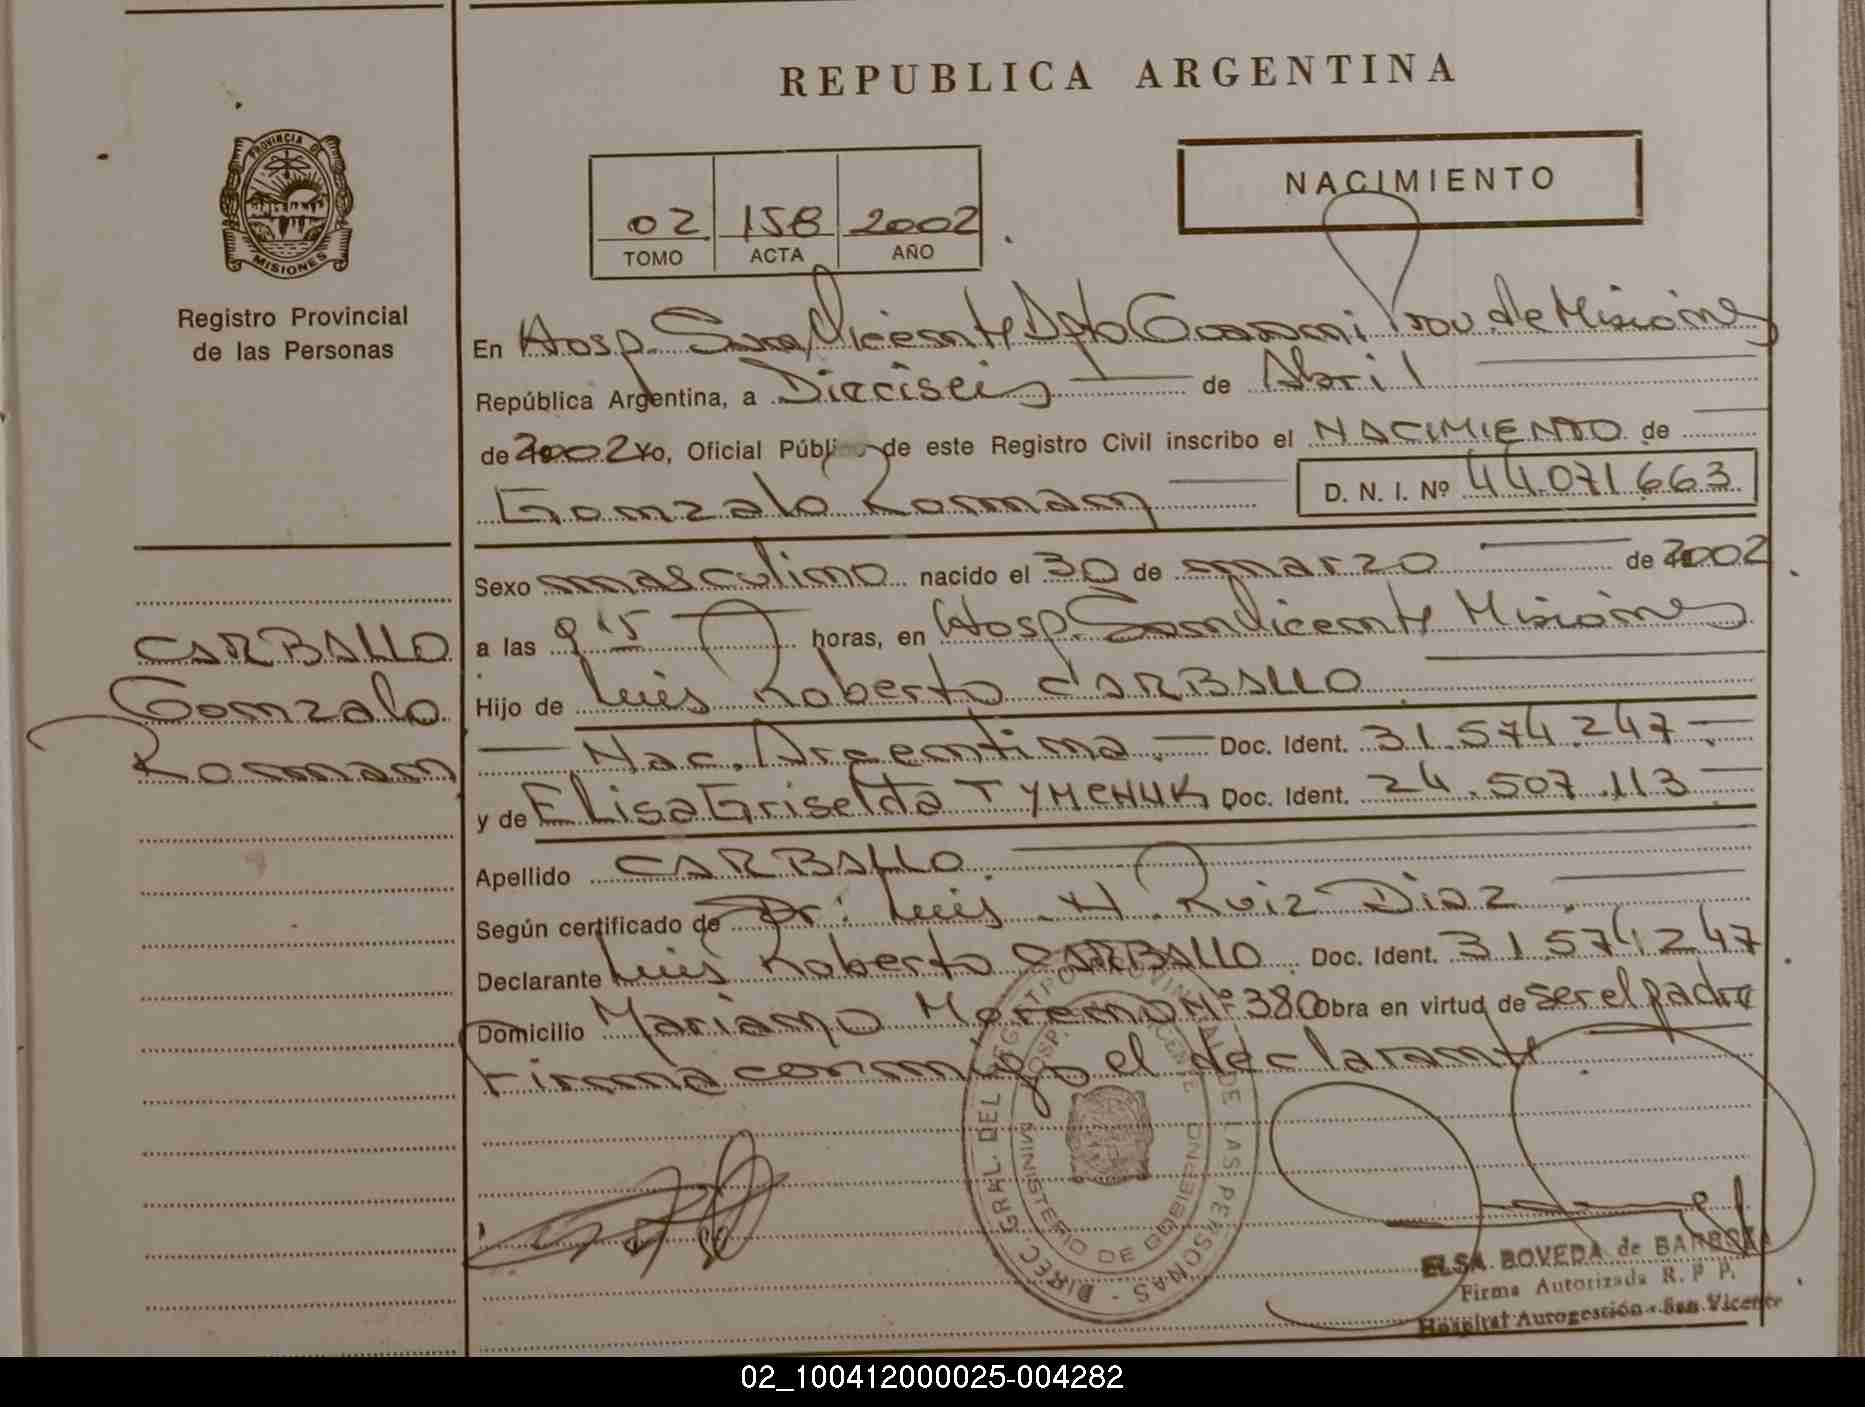 REPUBLICA ARGENTINA
PROVINCIA D
MISIONES
Registro Provincial
de las Personas
02 158 2002
TOMO ACTA AÑO
NACIMIENTO
En Hosp. San Vicente Dpto Guarani Prov. de Misiones
República Argentina, a Dieciseis de Abril
de 2002 Yo, Oficial Público de este Registro Civil inscribo el NACIMIENTO de
Gonzalo Roman D. N. I. Nº 44.071.663
Sexo masculino nacido el 30 de marzo de 2002
a las 9 15 horas, en Hosp. San Vicente Misiones
Hijo de Luis Roberto CARBALLO
Nac. Argentina. Doc. Ident. 31.574.247
y de Elisa Griselda TYMCHUK Doc. Ident. 24.507.113
Apellido CARBALLO
Según certificado de Dr. Luis H. Ruiz Diaz
Declarante Luis Roberto CARBALLO Doc. Ident. 31.574.247
Domicilio Mariano Moreno Nº 380 Obra en virtud de ser el padre
Firma conmigo el declarante
CARBALLO
Gonzalo
Roman
DIREC. GRAL. DEL REGISTRO PROVINCIAL DE LAS PERSONAS -
HOSP. VICENTE
MINISTERIO DE GOBIERNO
ELSA BOVEDA de BARBOZA
Firma Autorizada R. P. P.
Hospital Autogestión - San Vicente
02_100412000025-004282